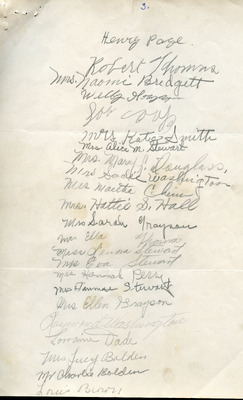 3.
Henry Page
Robert Thomas
Mrs. Naomi Bridgett
Willy
Joe
Mrs Katie Smith
Mrs Alice M. Stewart
Mrs. Mary J. Douglass,
Miss Sadie Washington
Miss Martha Chinn
Mrs Hattie D. Hall
Mrs Sarah Grayson
Mr Ella
Miss Lenna Stewart
Mrs Eva Stewart
Mrs Hannah Perry
Mrs Fannae Stewart
Mrs Ellen Grayson
Raymond Washington
Lorraine Dade
Mrs Lucy Balden
Mr Charlie Balden
Louis Brown